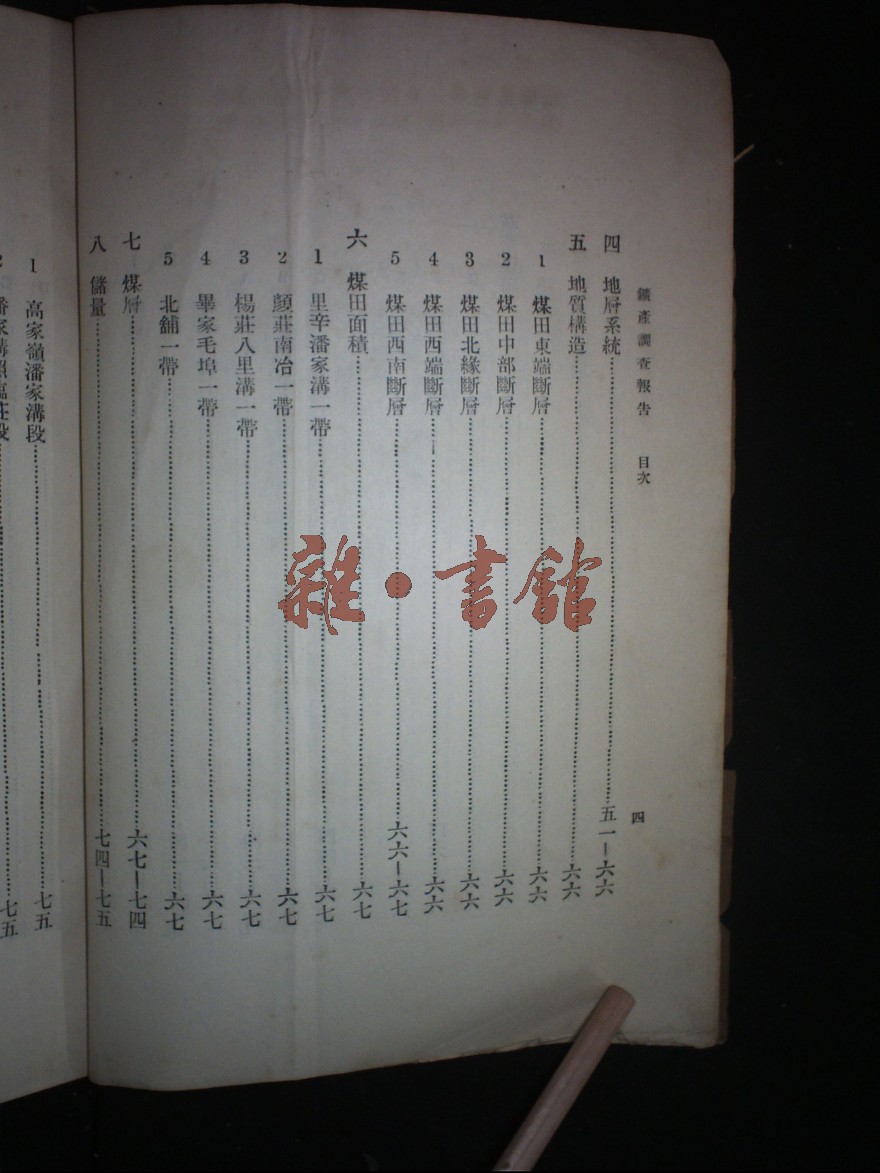 鑛產調查報告　目次　四
四　地層系統……五一—六六
五　地質構造……六六
1　煤田東端斷層……六六
2　煤田中部斷層……六六
3　煤田北緣斷層……六六
4　煤田西端斷層……六六
5　煤田西南斷層……六六—六七
六　煤田面積……六七
1　里辛潘家溝一帶……六七
2　顏莊南冶一帶……六七
3　楊莊八里溝一帶……六七
4　畢家毛埠一帶……六七
5　北舖一帶……六七
七　煤層……六七—七四
八　儲量……七四—七五
1　高家嶺潘家溝段……七五
2　潘家溝照臨莊段……七五
雜·書館